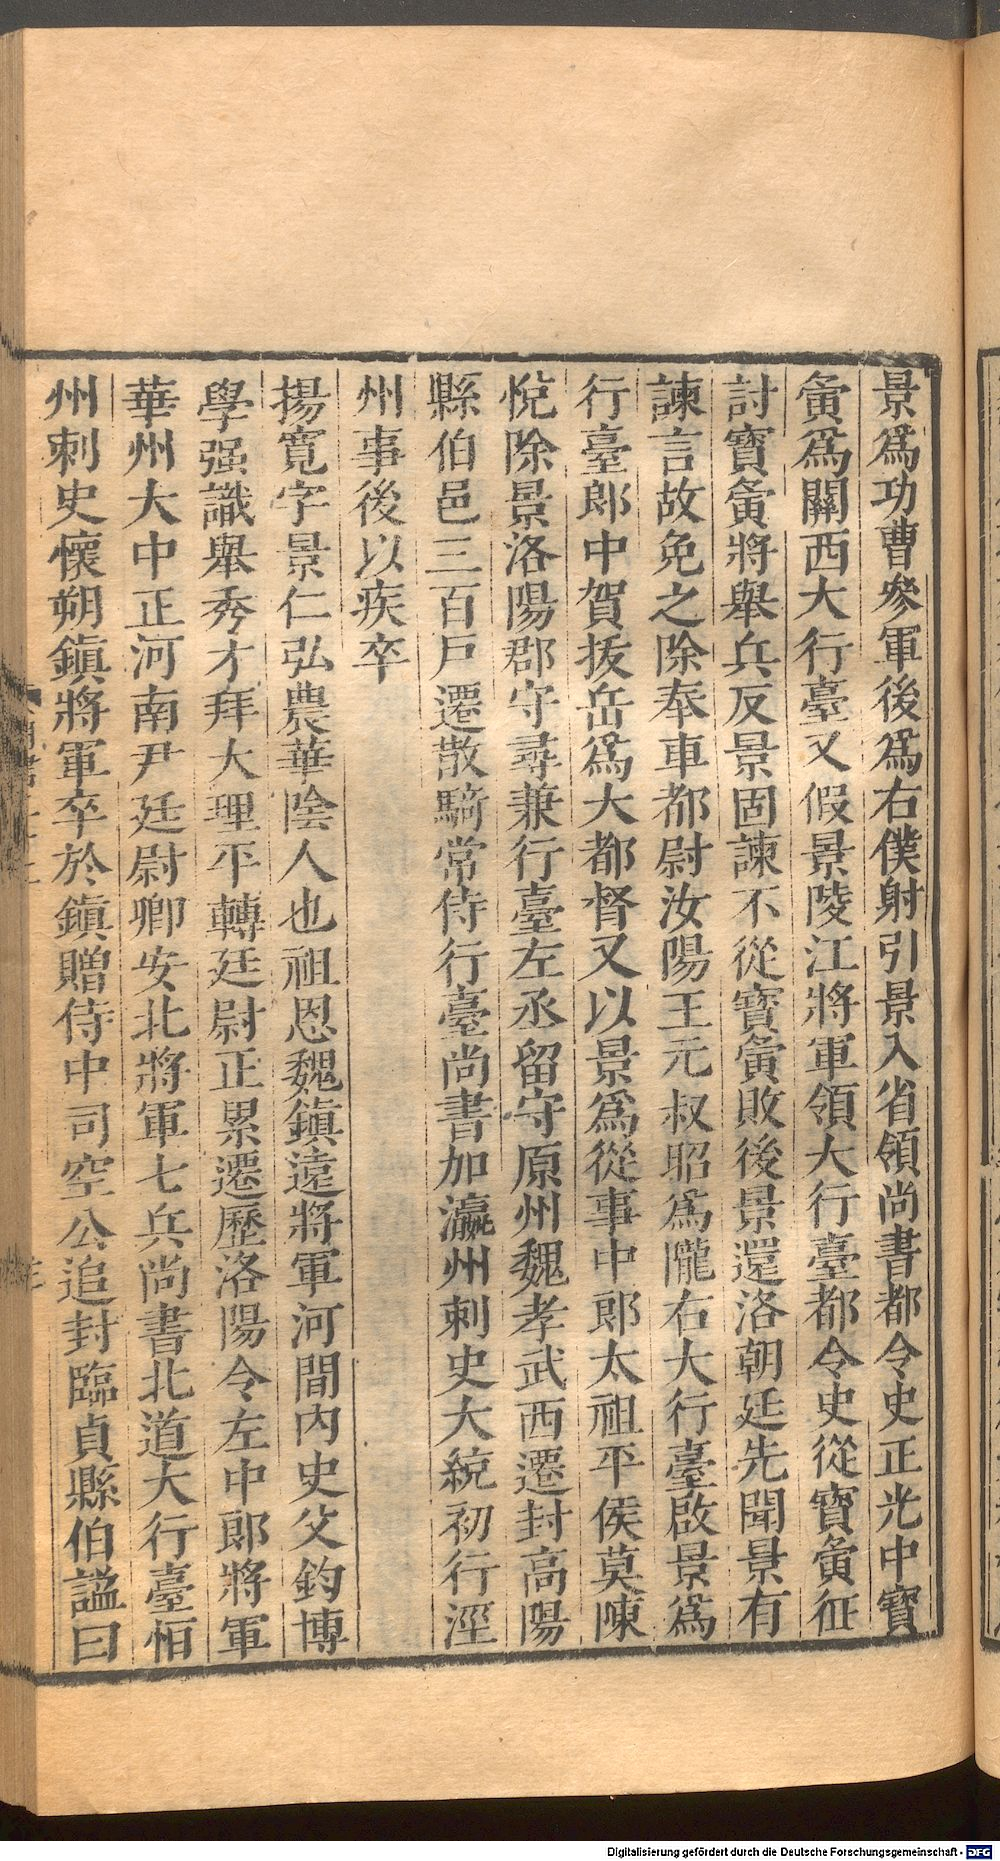 景爲功曹參軍後爲右僕射引景入省領尚書都令史正光中寶
夤爲關西大行臺又假景陵江將軍領大行臺都令史從寶夤征
討寶夤將舉兵反景固諫不從寶夤敗後景還洛朝廷先聞景有
諫言故免之除奉車都尉汝陽王元叔昭爲隴右大行臺啟景爲
行臺郎中賀拔岳爲大都督又以景爲從事中郎太祖平侯莫陳
悅除景洛陽郡守尋兼行臺左丞留守原州魏孝武西遷封高陽
縣伯邑三百戸遷散騎常侍行臺尚書加瀛州刺史大統初行涇
州事後以疾卒
揚寛字景仁弘農華陰人也祖恩魏鎭遠將軍河間內史父鈞博
學强識舉秀才拜大理平轉廷尉正累遷歷洛陽令左中郎將軍
華州大中正河南尹廷尉卿安北將軍七兵尚書北道大行臺恒
州刺史懷朔鎭將軍卒於鎭贈侍中司空公追封臨貞縣伯謚曰
Digitalisierung gefördert durch die Deutsche Forschungsgemeinschaft - DFG